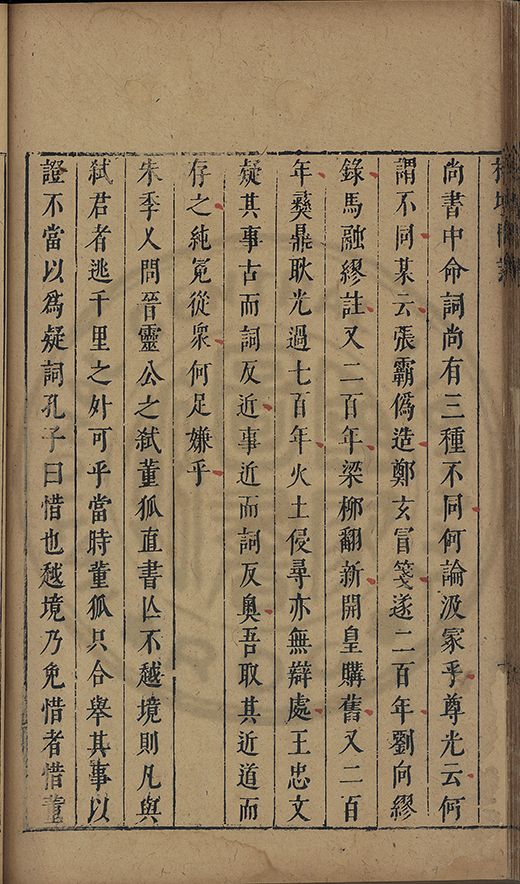 尚書中命詞尚有三種不同何論汲冢乎尊光云何
謂不同某云張霸偽造鄭玄冒箋遂二百年劉向繆
錄馬融繆註又二百年梁柳翻新開皇購舊又二百
年彝鼎耿光過七百年火土侵尋亦無辯處王忠文
疑其事古而詞反近事近而詞反奧吾取其近道而
存之純冕從衆何足嫌乎
朱季乂問晉靈公之弒董狐直書亾不越境則凡與
弒君者逃千里之外可乎當時董狐只合舉其事以
證不當以爲疑詞孔子曰惜也越境乃免惜者惜董